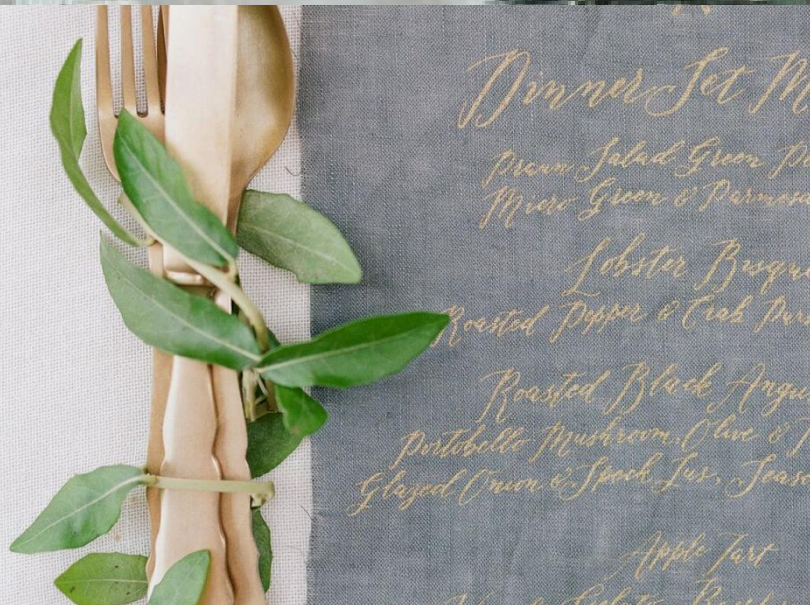 Dinner Set M
Prawn Salad Green P
Micro Green & Parmesa
Lobster Bisqu
Roasted Pepper & Crab Pur
Roasted Black Angu
Portobello Mushroom, Olive &
Glazed Onion & Speck Jus, Seas
Apple Tart